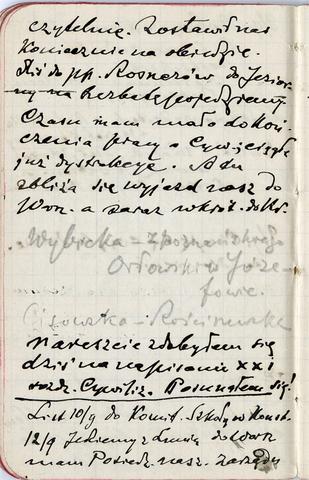 czytelnię. Zostawił nas
koniecznie na obiedzie.
dziś do pp. Rosnerów do Jezior
ny na herbatę pojedziemy
Czasu mam mało do koń-
czenia pracy o Cywi, ciągle
już dystrakcje. A tu
zbliża się wyjazd nasz do
Worr. a zaraz wkrót. do
Wybicka – z poznańskiego
Orłowski w Józe-
fowie.
Rościszewska
nareszcie zdobyłem się
dziś na napisanie XXI
rozdz. Cywiliz. Posunąłem się!
List 10/9 do Komit. Szkoły w Konst.
12/9 Jedziemy z do Warr
mam Posiedz. nasz. zarządu